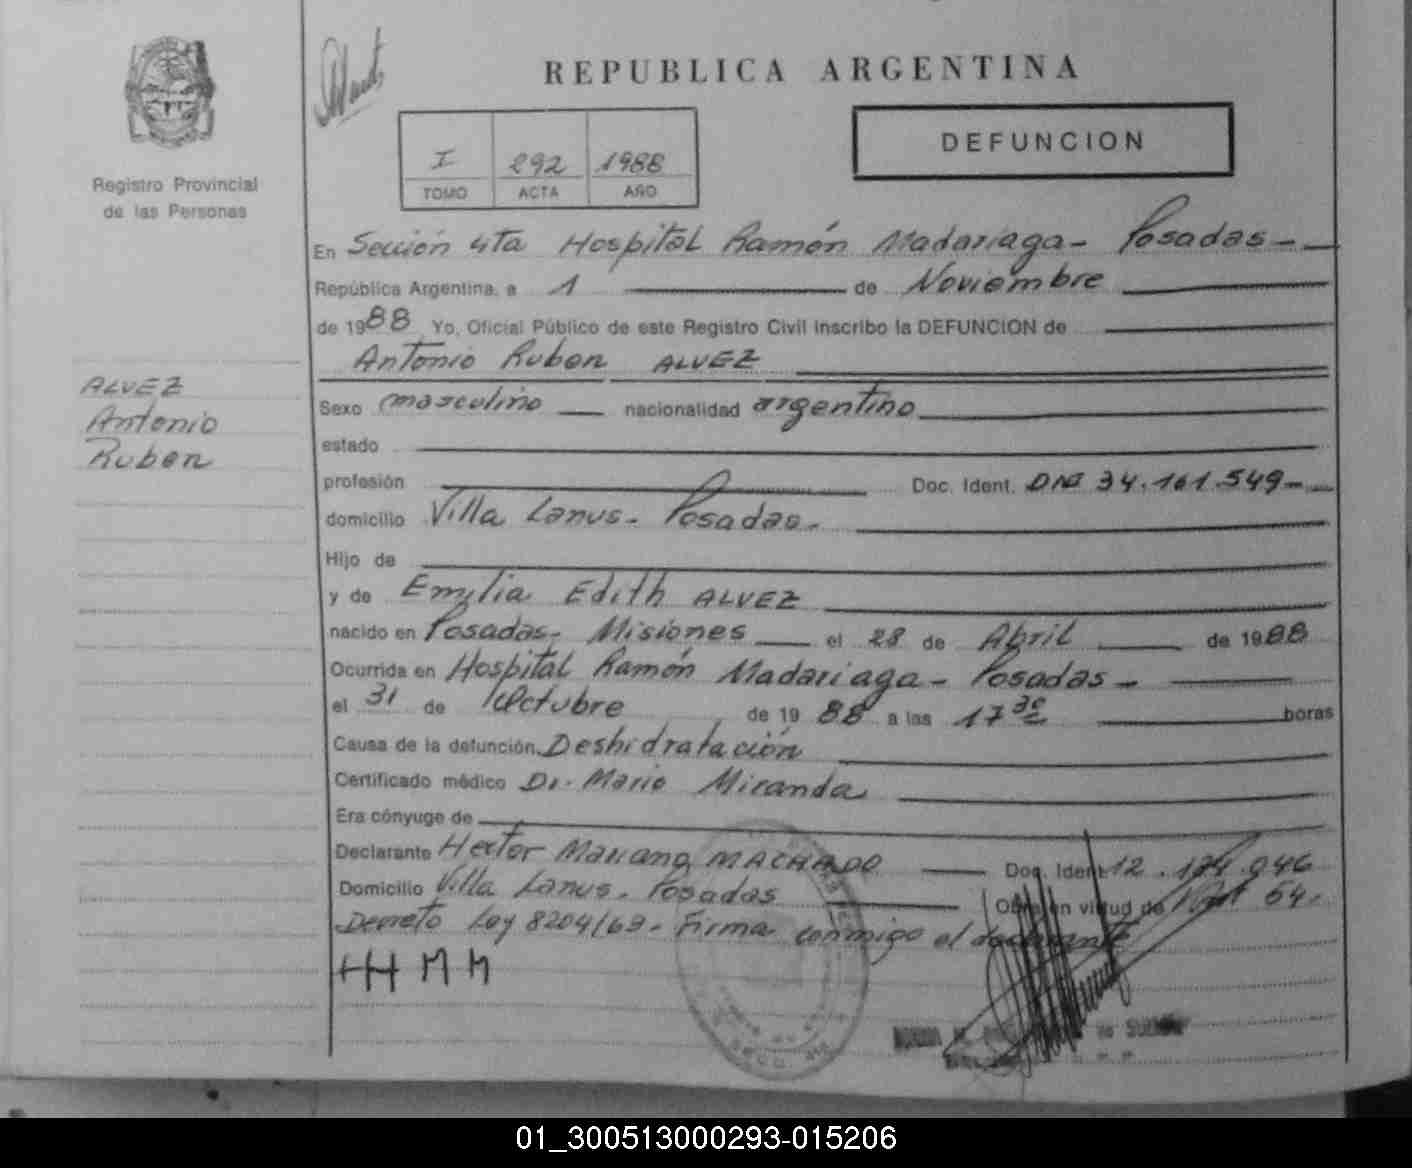 REPUBLICA ARGENTINA
DEFUNCION
I 292 1988
TOMO ACTA AÑO
Registro Provincial
de las Personas
ALVEZ
Antonio
Ruben
En Sección 4ta Hospital Ramón Madariaga - Posadas -
República Argentina, a 1 de Noviembre
de 1988 Yo, Oficial Público de este Registro Civil inscribo la DEFUNCION de
Antonio Ruben ALVEZ
Sexo masculino nacionalidad argentino
estado
profesión Doc. Ident. DNI 34.161.549-
domicilio Villa Lanus - Posadas -
Hijo de
y de Emilia Edith ALVEZ
nacido en Posadas - Misiones el 28 de Abril de 1988
Ocurrida en Hospital Ramón Madariaga - Posadas -
el 31 de Octubre de 1988 a las 17 30 horas
Causa de la defunción Deshidratación
Certificado médico Dr. Mario Miranda
Era cónyuge de
Declarante Hector Mariano MACHADO Doc. Ident. 12.174.046
Domicilio Villa Lanus - Posadas Obra en virtud de 64-
Decreto Ley 8204/63 - Firma conmigo el declarante
HMM
01_300513000293-015206